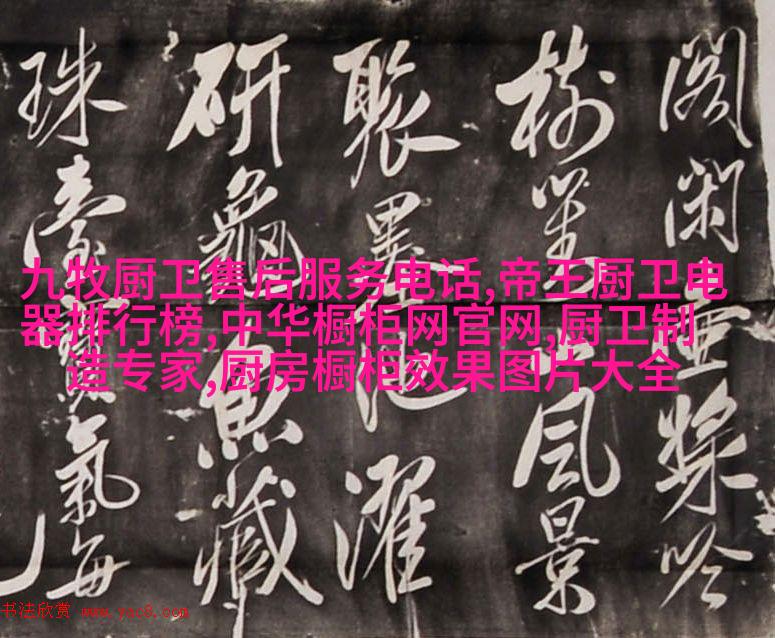 九牧厨卫售后服务电话,帝王厨卫电
器排行榜,中华橱柜网官网,厨卫制
造专家,厨房橱柜效果图片大全
阁闲吟
树风景
墨池濯
研魚藏
珠氣每
书法欣赏 www.yac8.com